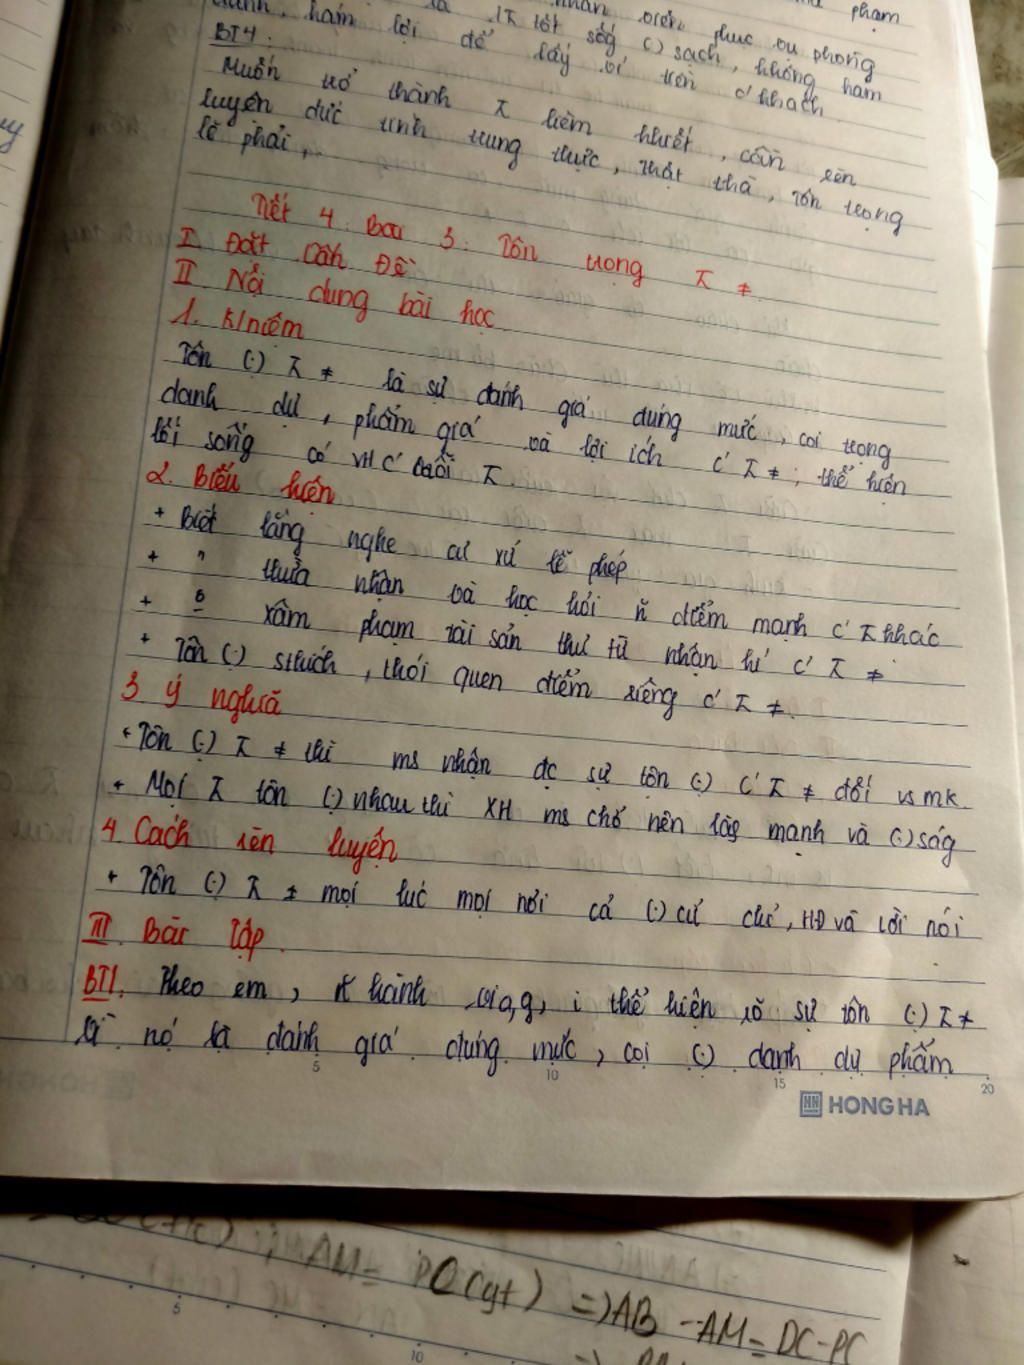 phạm
nhân phục vụ phong
là tốt sống (:) sạch, không ham
danh, ham lợi để lấy ví trên c' khách.
BT4:
Muốn trở thành ⊼ liêm khiết, cần rèn
luyện đức tính trung thực, thật thà, tôn trọng
lẽ phải,..
Tiết 4: Bài 3: Tôn trọng ⊼ ≠
I Đặt vấn Đề
II Nội dung bài học
1. K/niệm
Tôn (:) ⊼ ≠ là sự đánh giá đúng mức, coi trọng
danh dự, phẩm giá và lợi ích c' ⊼ ≠; thể hiện
lối sống có VH c' mỗi ⊼.
2. Biểu hiện
+ Biết lắng nghe cư xử lễ phép
+ " thừa nhận và học hỏi ~ điểm mạnh c' ⊼ khác
+ o xâm phạm tài sản thư từ nhật kí c' ⊼ ≠
+ Tôn (:) sthích, thói quen điểm riêng c' ⊼ ≠.
3 ý nghĩa
+ Tôn (:) ⊼ ≠ thì ms nhận đc sự tôn (:) c' ⊼ ≠ đối vs mk.
+ Mọi ⊼ tôn (:) nhau thì XH ms trở nên làg mạnh và (:) ság
4 Cách rèn luyện
+ Tôn (:) ⊼ ≠ mọi lúc mọi nơi cả (:) cử chỉ, HĐ và lời nói
III. Bài Tập.
BT1. Theo em, hành vi a, g, i thể hiện rõ sự tôn (:) ⊼ ≠
Vì nó là đánh giá đúng mức, coi (:) danh dự phẩm
5 10 15 20
HONG HA
; AM = PC (gt) => AB - AM = DC - PC
5 10